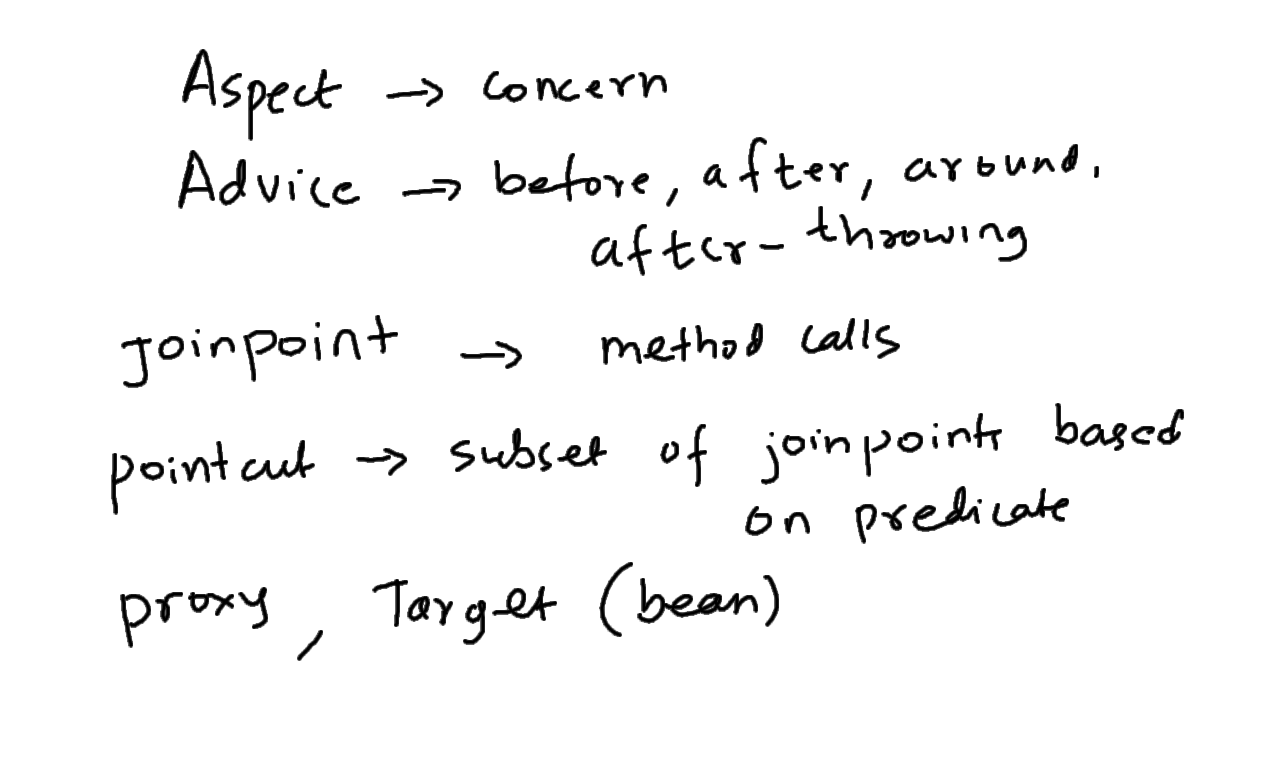 Aspect → concern
Advice → before, after, around,
after-throwing
Joinpoint → method calls
pointcut → subset of joinpoints based
on predicate
proxy, Target (bean)